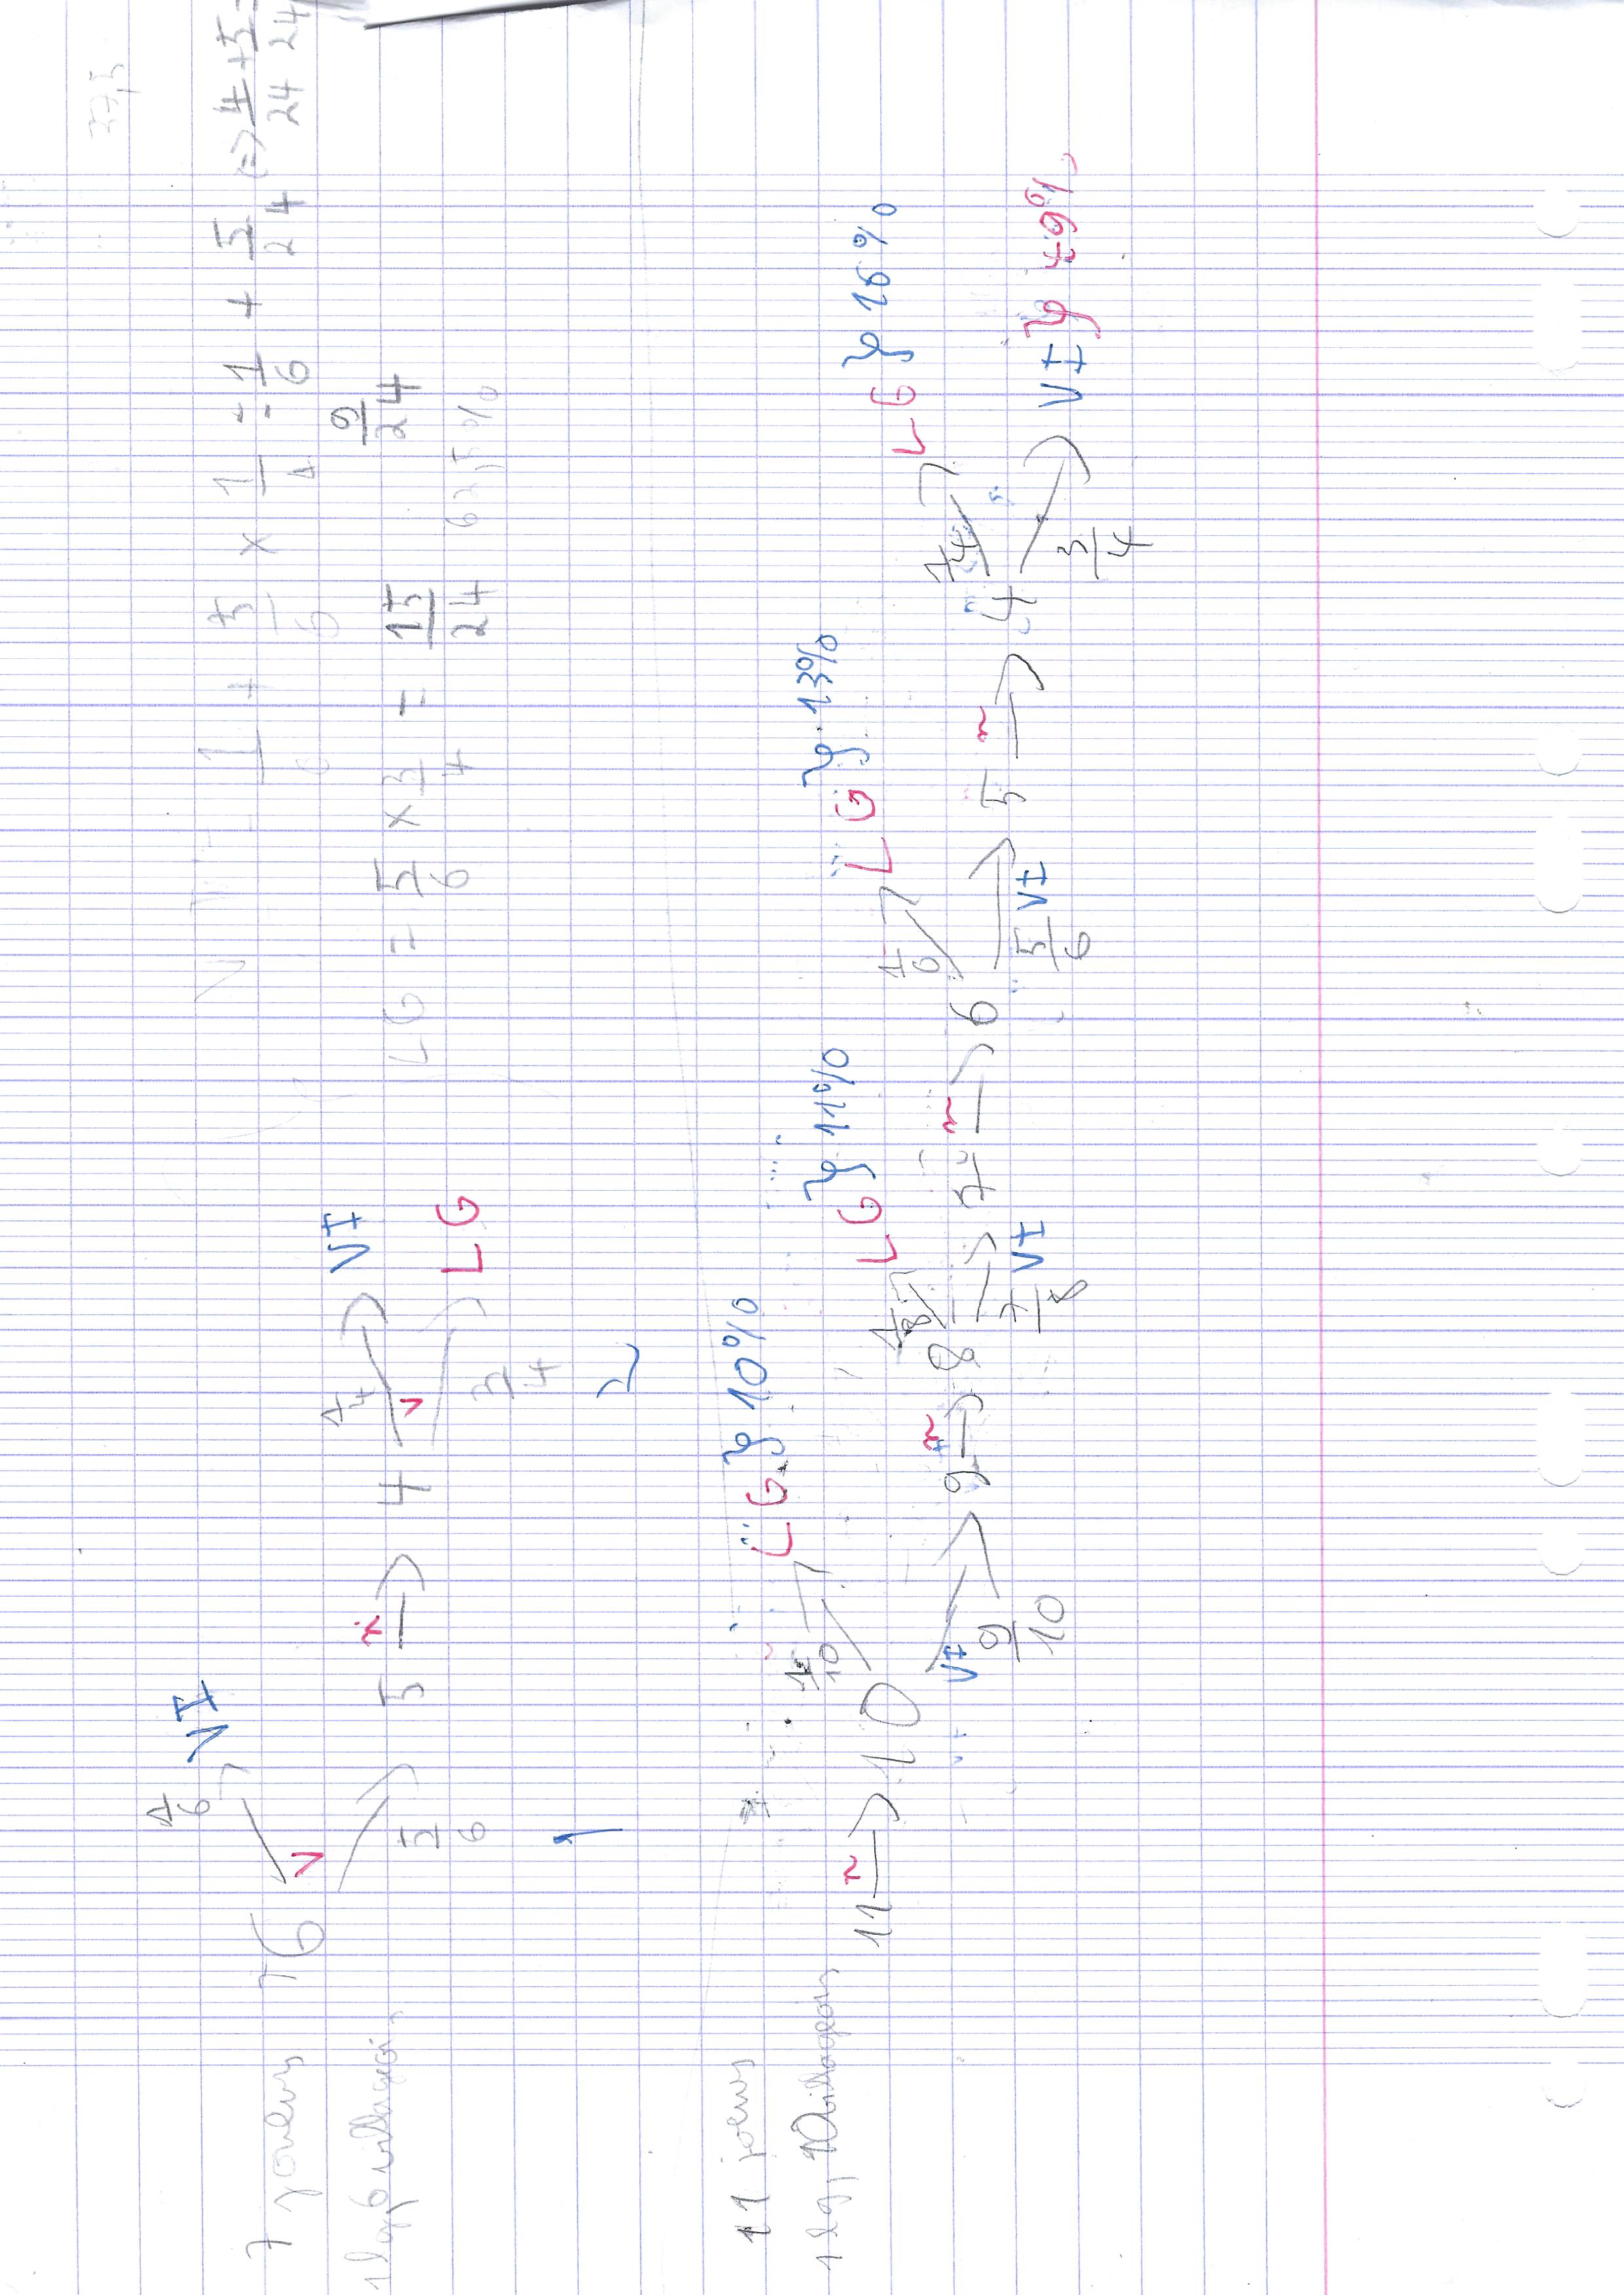 37,5
1/6 VI
7 joueurs 6 V
1 lg, 6 villageois
5/6 5 n 4 1/4 V VI
3/4 LG
V = 1/6 + 5/6 × 1/4 = 1/6 + 5/24 => 4/24 + 5/24 =
9/24
LG = 5/6 × 3/4 = 15/24 62,5%
1 2
11 joeurs
1 lg, 10 villageois
11 n 10 1/10 LG } 10%
VI 9/10 9 n 8 1/8 LG } 11%
7/8 VI 7 n 6 1/6 LG } 13%
5/6 VI 5 n 4 1/4 LG } 16%
3/4 VI } 49%